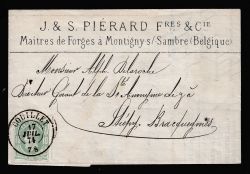 J. & S. PIÉRARD FRES & CIE
Maîtres de Forges à Montigny s/ Sambre (Belgique)
Monsieur Alph. Delaroche
Directeur Gérant de la Sté Anonyme
Strépy-Bracquegnies
COUILLET
17
JUIL
74